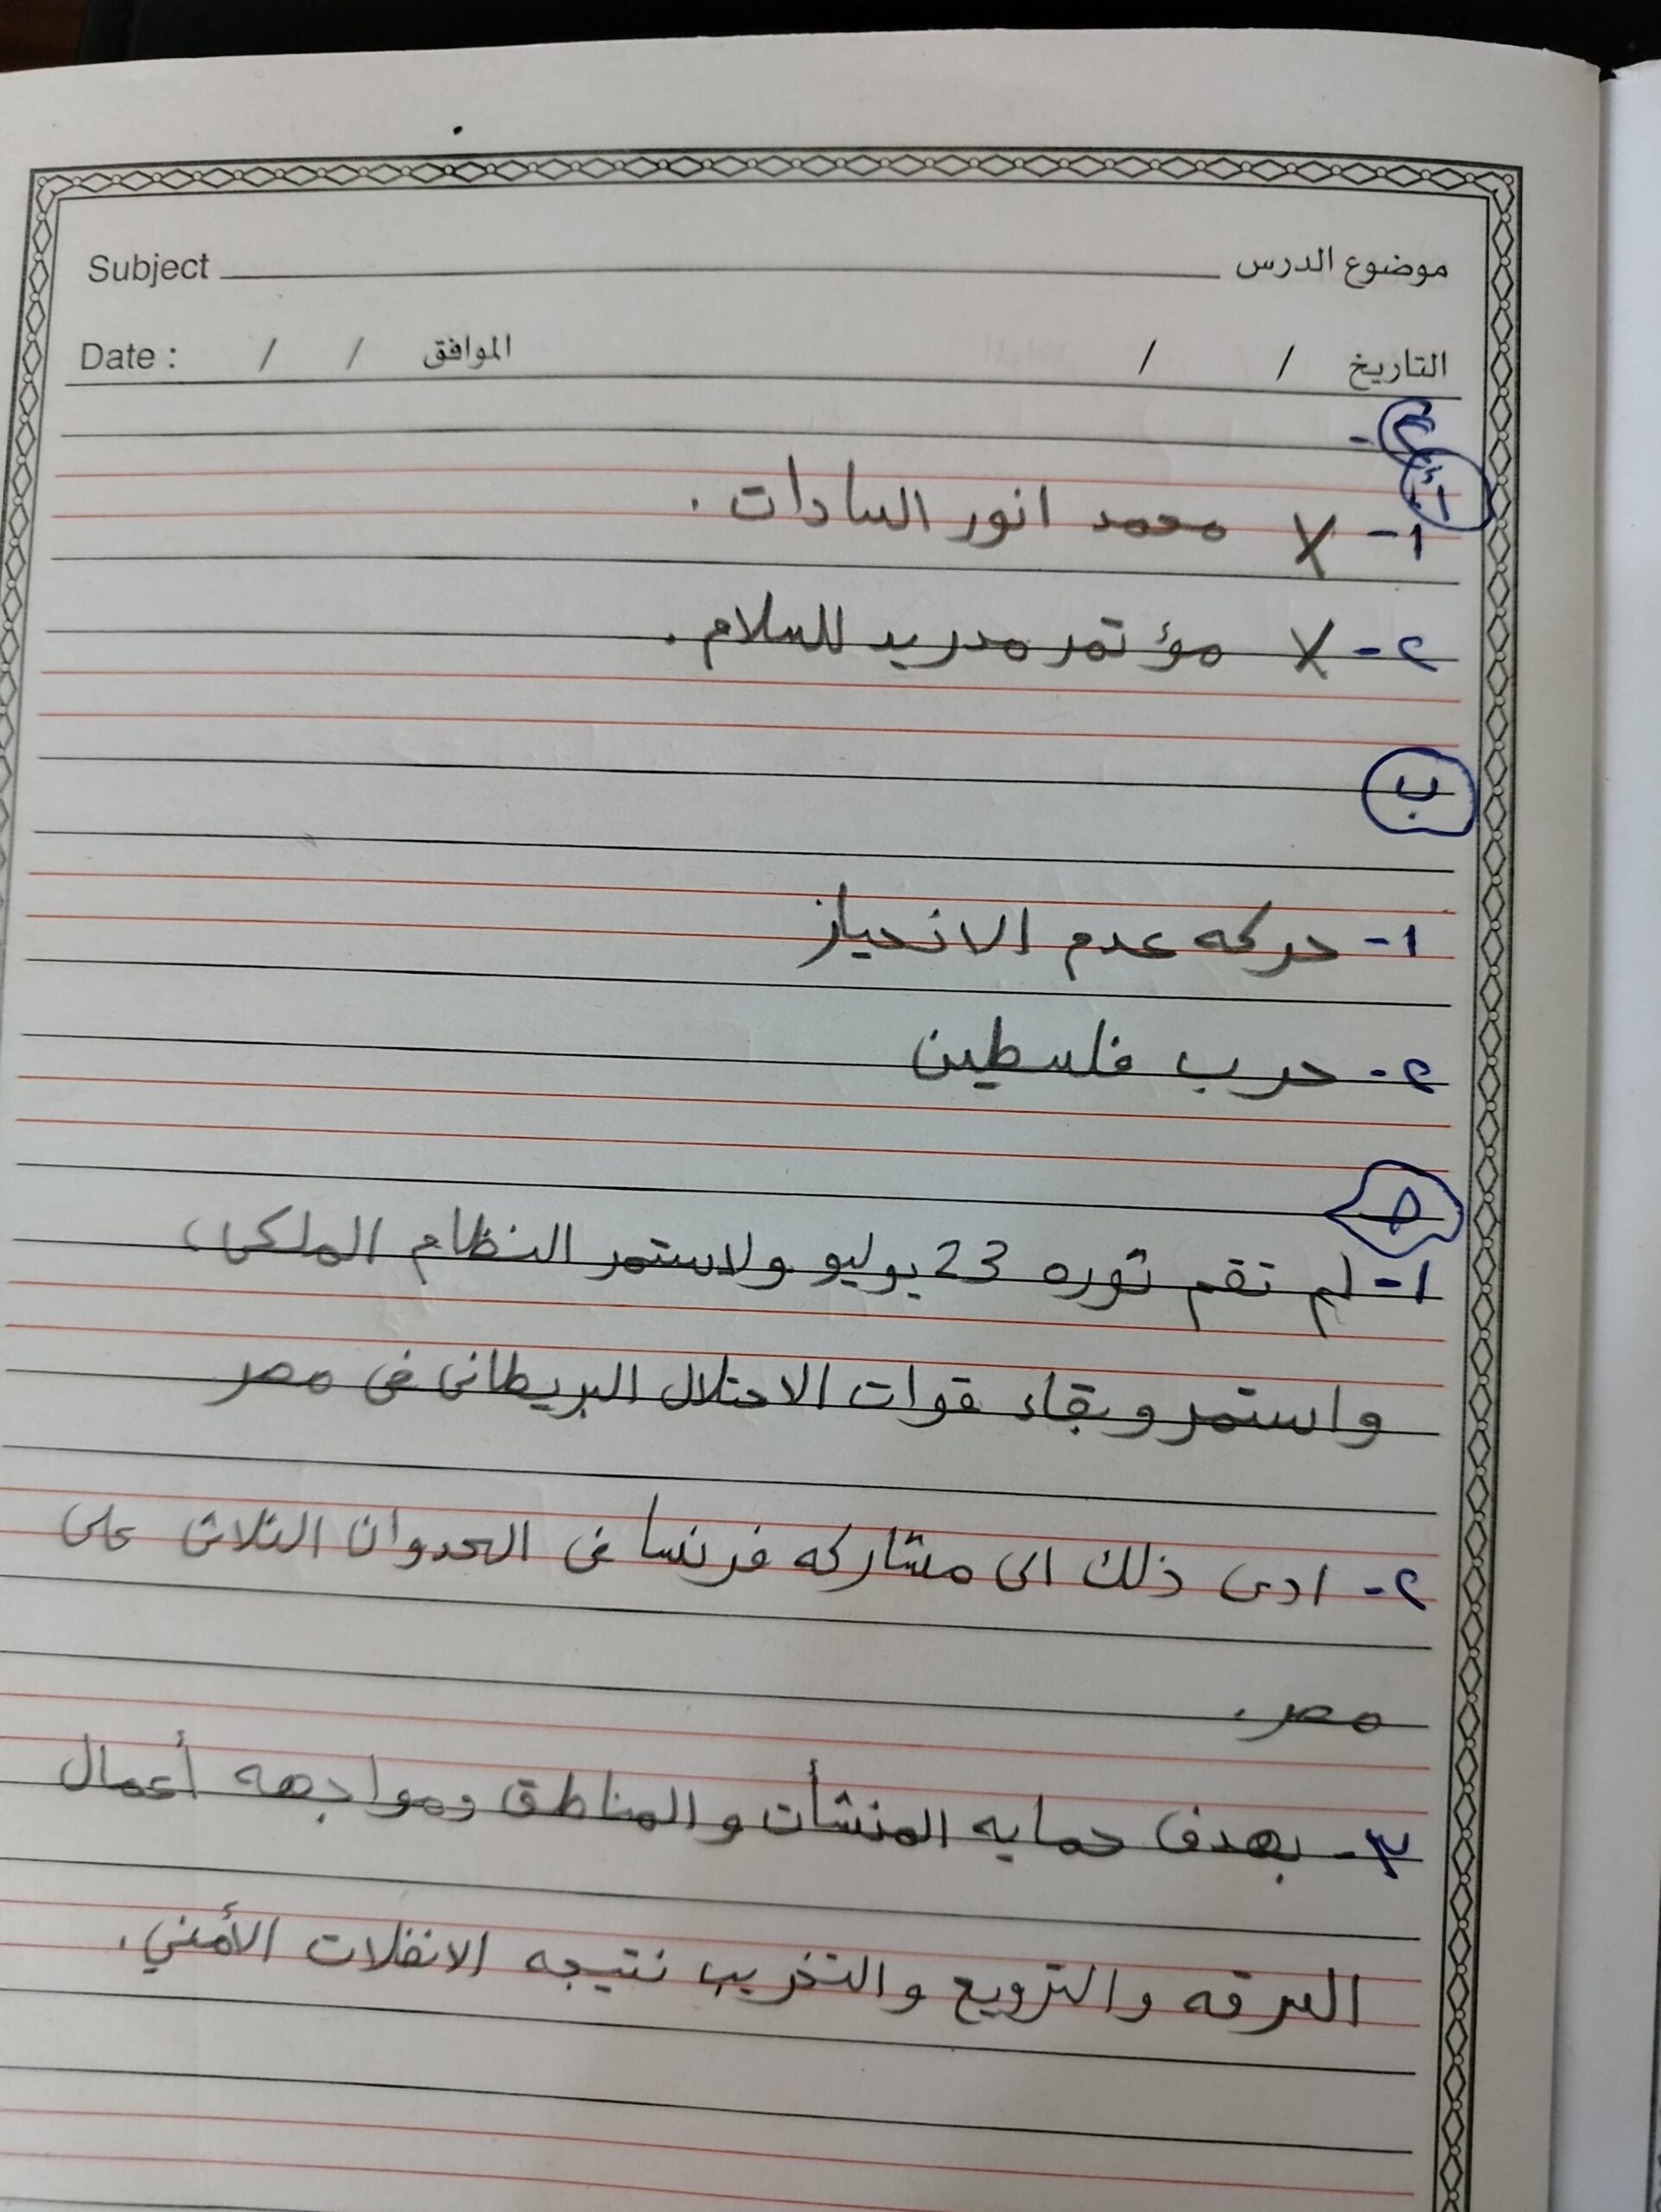 موضوع الدرس Subject
التاريخ / / الموافق / / Date :
٢-
أ
١- X محمد انور السادات .
٢- X مؤتمر مدريد للسلام .
ب
١- حركه عدم الانحياز
٢- حرب فلسطين
١- لم تقم ثوره 23 يوليو ولاستمر النظام الملكى ،
واستمر وبقاء قوات الاحتلال البريطانى فى مصر
٢- ادى ذلك الى مشاركه فرنسا فى العدوان الثلاثى على
مصر .
٣- بهدف حمايه المنشأت والمناطق ومواجهه أعمال
السرقه والترويع والتخريب نتيجه الانفلات الأمني .